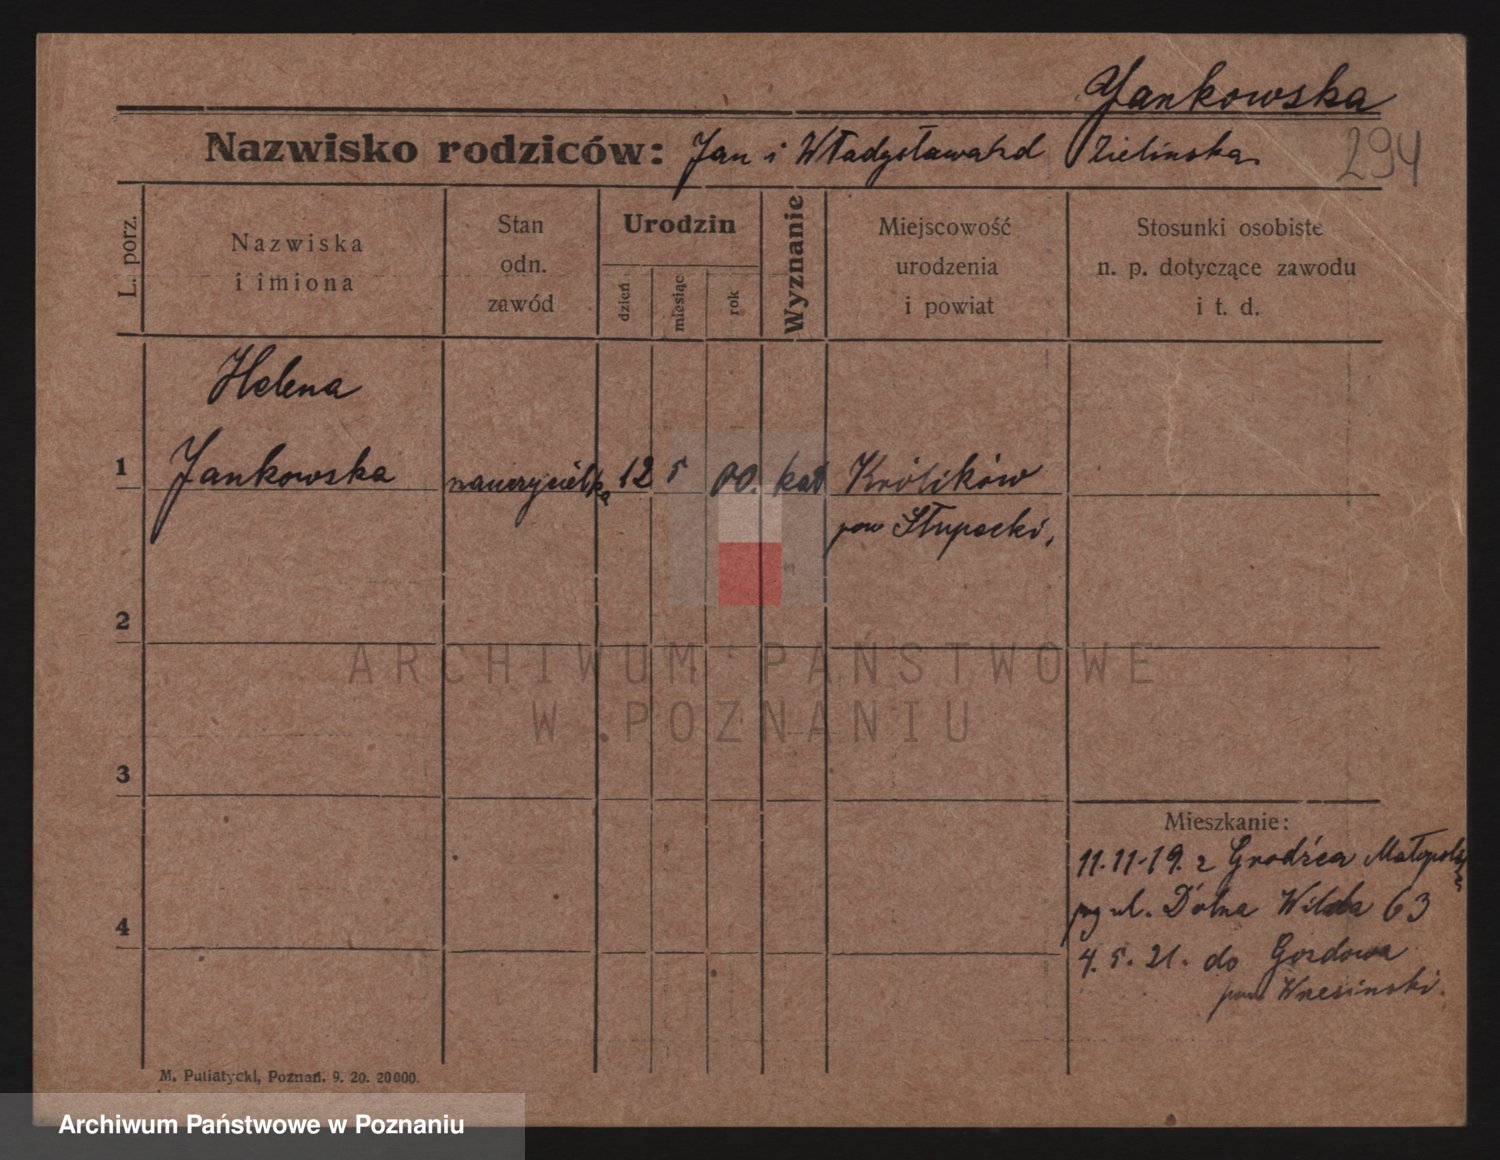 Jankowska
Nazwisko rodziców: Jan i Władysława zd Zielinska
294
L. porz.
Nazwiska
i imiona
Stan
odn.
zawód
Urodzin
dzień
miesiąc
rok
Wyznanie
Miejscowość
urodzenia
i powiat
Stosunki osobiste
n. p. dotyczące zawodu
i t. d.
Helena
1 Jankowska nauczycielka 12 5 00. kat Królików
pow Słupecki,
2
ARCHIWUM PAŃSTWOWE
W POZNANIU
3
Mieszkanie:
11.11.19. z Grodźca
ul. Dolna Wilda 63
4
4.5.21. do
pow Wresinski.
M. Putiatycki, Poznań. 9. 20. 20000.
Archiwum Państwowe w Poznaniu